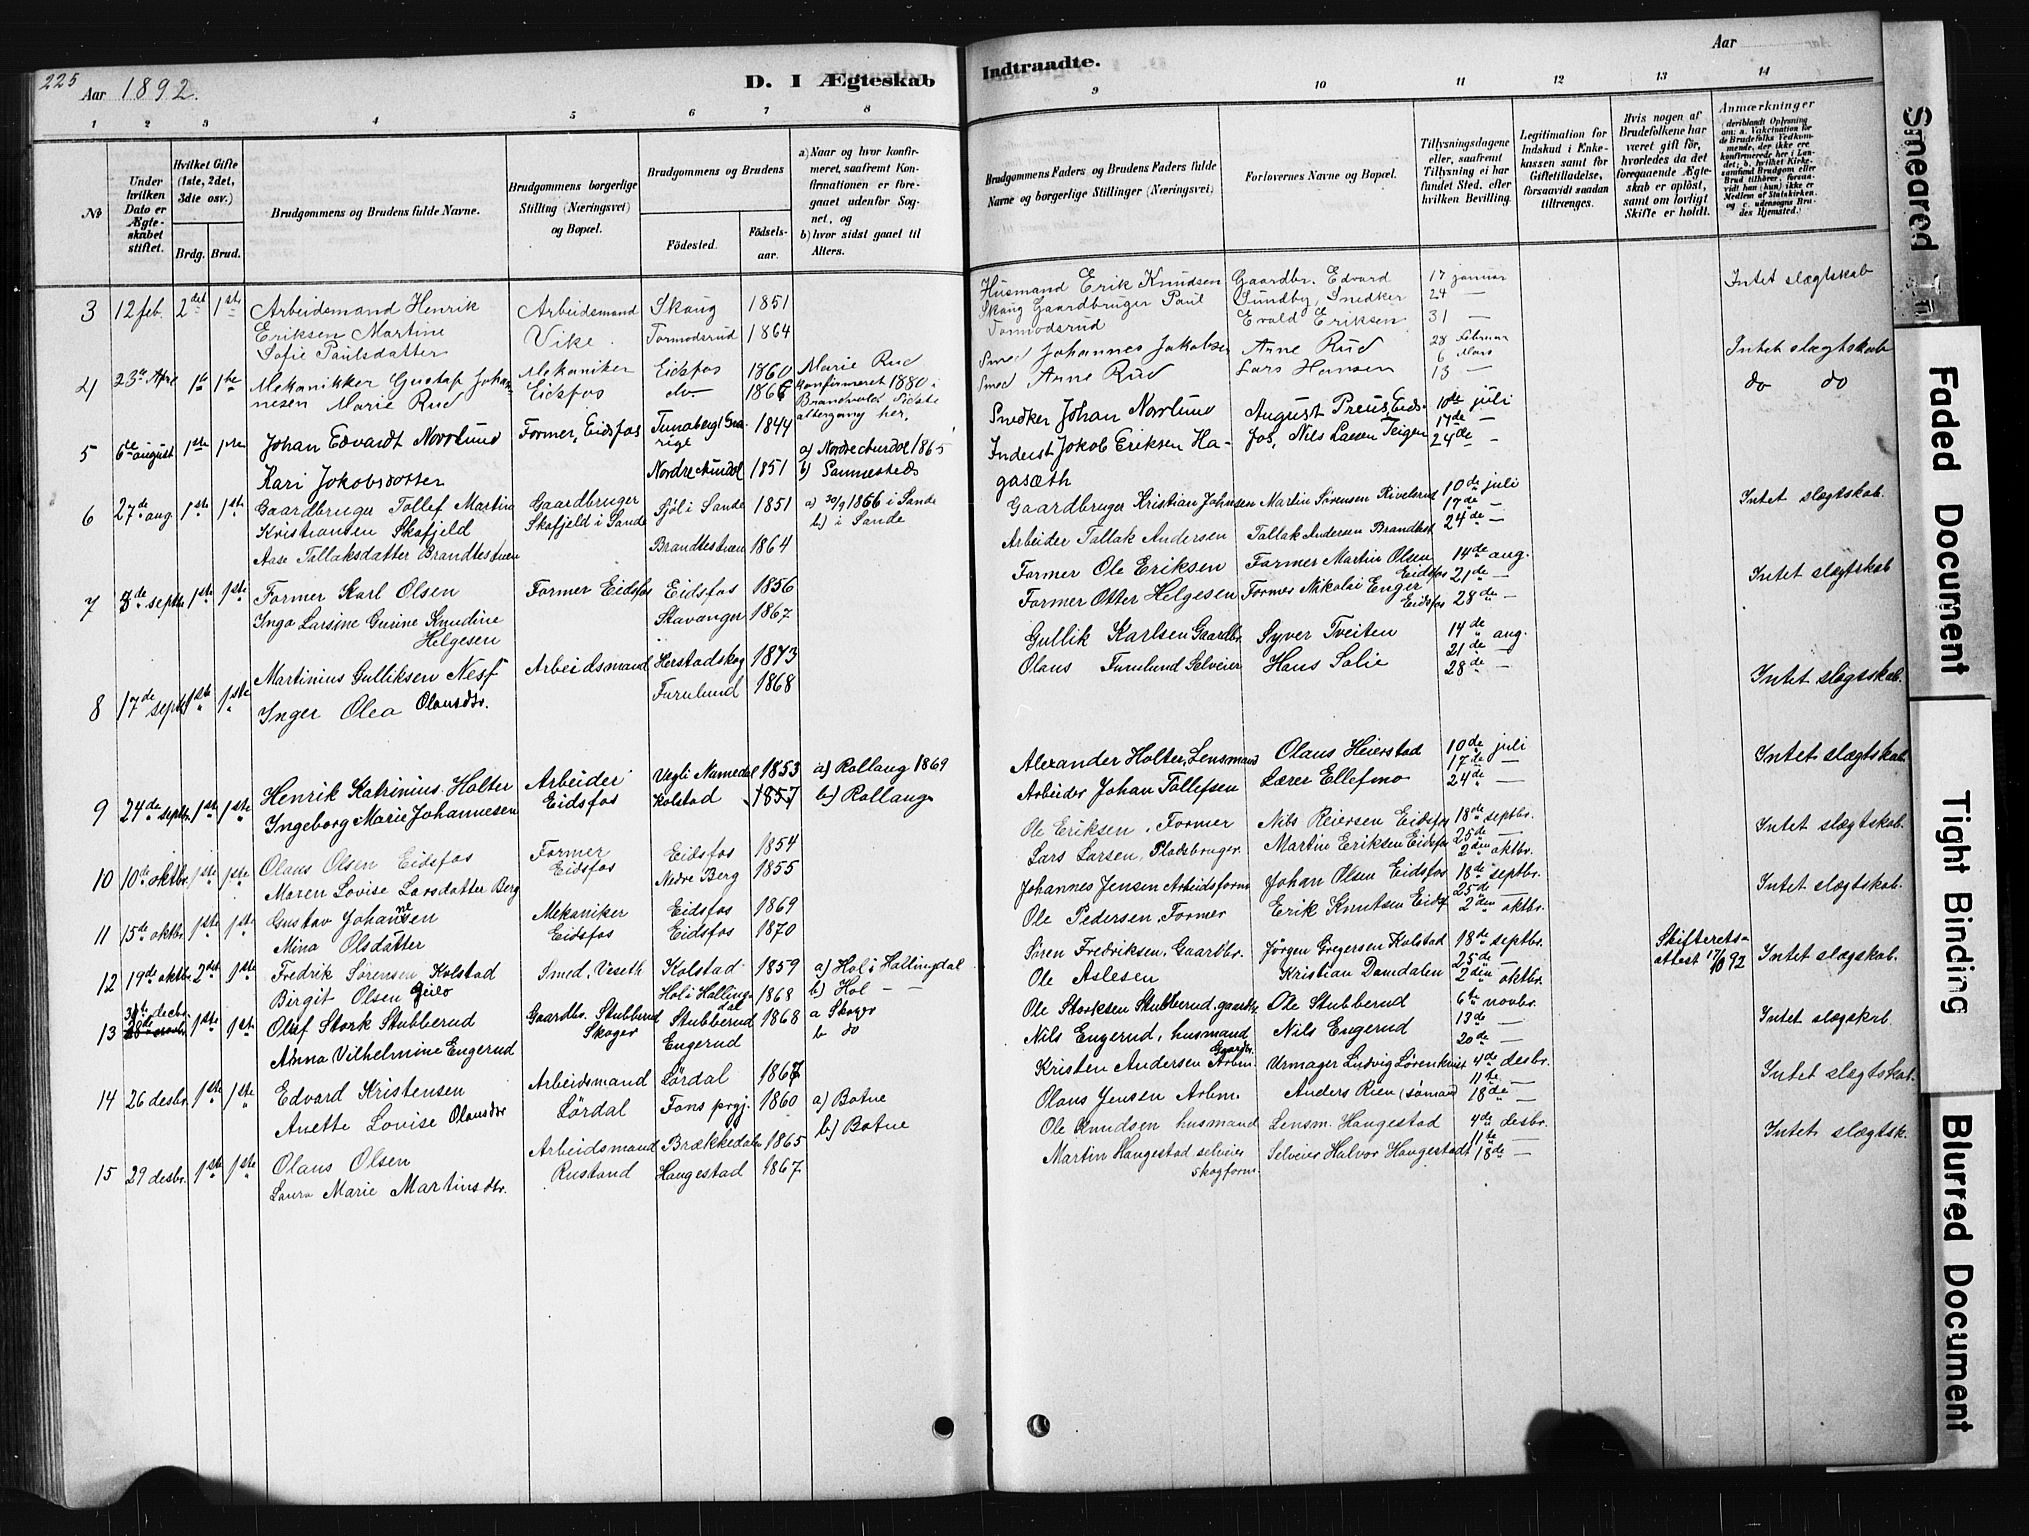 225
Aar 1892.
D. I Ægteskab
Indtraadte.
Aar
1 2 3 4 5 6 7 8
9 10 11 12 13 14
№
Under hvilken Dato er Ægteskabet stiftet.
Hvilket Gifte (1ste, 2det, 3die osv.)
Brdg. Brud.
Brudgommens og Brudens fulde Navne.
Brudgommens borgerlige Stilling (Næringsvei) og Bopæl.
Brudgommens og Brudens
Födested.
Födselsaar.
a) Naar og hvor konfirmeret, saafremt Konfirmationen er foregaaet udenfor Sognet, og
b) hvor sidst gaaet til Alters.
Brudgommens Faders og Brudens Faders fulde Navne og borgerlige Stillinger (Næringsvei)
Forlovernes Navne og Bopæl.
Tillysningsdagene eller, saafremt Tillysning ei har fundet Sted, efter hvilken Bevilling.
Legitimation for Indskud i Enkekassen samt for Giftetilladelse, forsaavidt saadan tiltrænges.
Hvis nogen af Brudefolkene har været gift før, hvorledes da det foregaaende Ægteskab er oplöst, samt om lovligt Skifte er holdt.
Anmærkninger
3 12 feb. 2det 1ste Arbeidsmand Henrik Arbeidsmand Skaug 1851 Husmand Erik Knudsen Gaardbr. Edvard 17 januar Intet slægtskab
Eriksen Martine Vike. Tormodsrud 1864 Skaug Gaardbruger Paul Sundby, Snedker 24 —
Sofie Paulsdatter Tormodsrud Evald Eriksen 31 —
4 23de Apr 1ste 1ste Mekanikker Gustaf Johan- Mekaniker Eidsfos 1860 Marie Rud Smed Johannes Jakobsen Arne Rud 28 Februar Intet slægtskab
nesen Marie Rud Eidsfos do 1866 konfirmeret 1880 i Smed Arne Rud Lars Hansen 6 Mars do do
altergang her. 13 —
5 6te august 1ste 1ste Johan Edvardt Norrlund Former, Eidsfos 1844 Snedker Johan Norrlund August Preus, Eids- 10de juli
a) Nordre Aurdal 1865 Inderst Jokob Eriksen Ha- fos, Nils Larsen Teigen 17de —
Kari Jokobsdotter Nordre Aurdal 1851 b) Sammesteds gasæth 24de —
6 27de aug 1ste 1ste Gaardbruger Tollef Martin Gaardbruger Sjöl i Sande 1851 a) 30/9 1866 i Sande Gaardbruger Kristian Johnsen Martin Sørensen 10de juli Intet slægtskab.
Kristiansen Skafjeld Skafjeld i Sande b) i Sande 17de —
Aase Tallaksdatter Brandtestuen Brandtestuen 1864 Arbeider Tallak Andersen Tallak Andersen Brandtest 24de —
7 8de septbr 1ste 1ste Former Karl Olsen Former Eidsfos Eidsfos 1856 Former Ole Eriksen Former Martin Olsen Eidsfos 14de aug. Intet slægtskab
Inga Larsine Gurine Knudine Stavanger 1867 Former Otter Helgesen Former Nikolai Enger Eidsfos 21de —
Helgesen 28de —
8 17de septbr 1ste 1ste Martinius Gulliksen Nesf Arbeidsmand Herstadskog 1873 Gullik Karlsen Gaardbr. Syver Tveiten 14de aug. Intet slægtskab.
Inger Olea Olausdtr. Furulund 1868 Olaus Furulund Selveier Hans Solie 21de —
28de —
9 24de septbr. 1ste 1ste Henrik Katrinius Holter Arbeider 1853 a) Rollaug 1869 Alexander Holter, Lensmand Olaus Heierstad 10de juli Intet slægtskab.
Ingeborg Marie Johannesen Eidsfos Kolstad 1857 b) Rollaug Arbeider Johan Tollefsen Lærer Ellefmo 17de —
24de —
10 10de oktbr. 1ste 1ste Olaus Olsen Eidsfos Former Eidsfos 1854 Ole Eriksen, Former Nils Reiersen Eidsfos 18de septbr. Intet slægtskab.
Maren Lovise Larsdatter Berg Eidsfos Nedre Berg 1855 Lars Larsen, Pladsbruger. Martin Eriksen Eidsfos 25de —
2den oktbr.
11 15de oktbr. 1ste 1ste Gustav Johannesen Mekaniker Eidsfos 1869 Johannes Jensen Arbeidsform Johan Olsen Eidsfos 18de septbr. Intet slægtskab.
Mina Olsdatter Eidsfos Eidsfos 1870 Ole Pedersen, Former Erik Knutsen Eidsf 25de
2den oktbr.
12 19de oktbr. 2det 1ste Fredrik Sørensen Kolstad Smed, Veseth Kolstad 1859 a) Hol i Hallingdal Søren Fredriksen, Gaardbr. Jørgen Gregersen Kolstad 18de septbr. Skifterets- Intet slægskab.
Birgit Olsen Geilo Hol i Hallingdal 1868 b) Hol — Ole Aslesen Kristian Damdalen 25de attest 17/10 92
2den oktbr.
13 decbr. 1ste 1ste Oluf Stork Stubberud Gaardbr. Stubberud Stubberud 1868 a Skoger Ole Storksen Stubberud, gaardbr Ole Stubberud 6te novbr. Intet slægskab
Anna Vilhelmine Engerud Skoger Engerud b do Nils Engerud, husmand Nils Engerud 13de —
20de —
14 26 desbr. 1ste 1ste Edvard Kristensen Arbeidsmand Lørdal 1867 Kristen Andersen Gaardbr. Urmager Ludvig 4de desbr. Intet slægtskab.
Anette Lovise Olausdtr Lørdal Fons prgj. 1860 a) Botne Olaus Jensen Arbm. Anders Rien (sømand 11te —
b) Botne 18de —
15 29 desbr. 1ste 1ste Olaus Olsen Arbeidsmand Brækkedalen 1865 Ole Knudsen husmand Lensm. Hangestad 4de desbr. Intet slægtsk.
Laura Marie Martinsdtr. Rustand Hangestad 1867 Martin Hangestad selveier Selveier Halvor Hangestadt 11te —
skogform. 18de —
Smeared
Faded Document
Tight Binding
Blurred Document